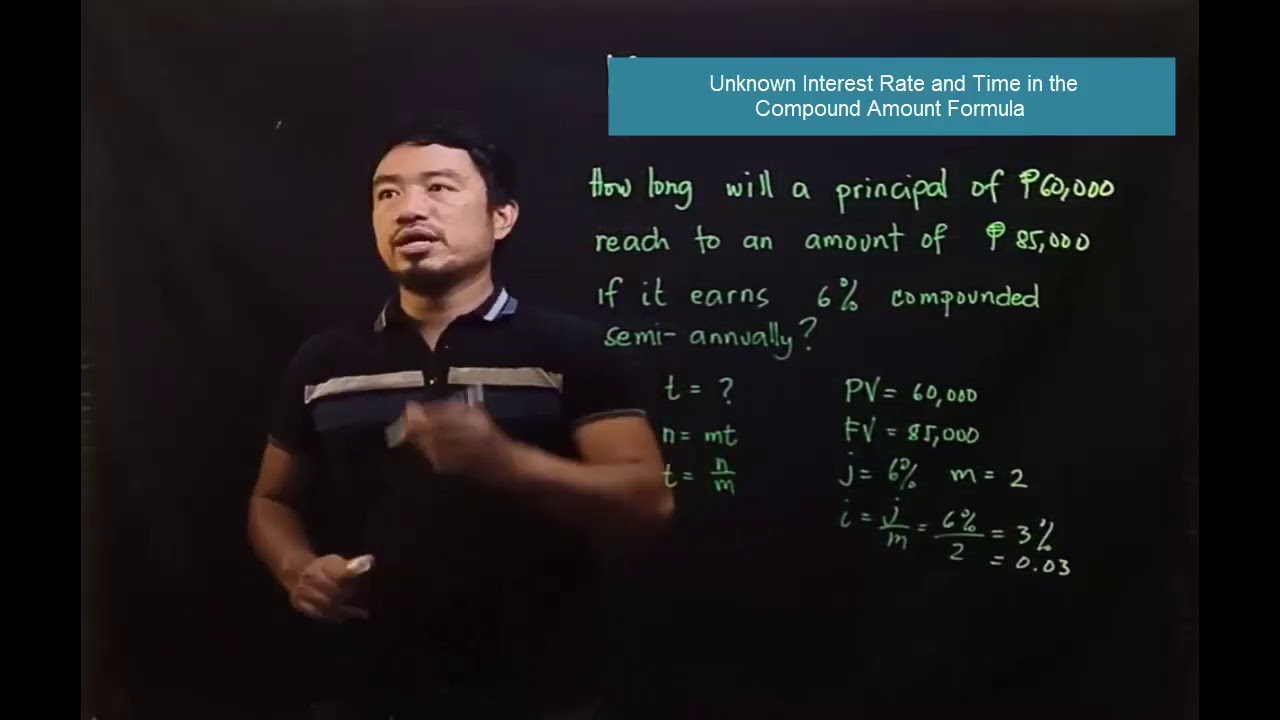 Unknown Interest Rate and Time in the
Compound Amount Formula
How long will a principal of ₱60,000
reach to an amount of ₱ 85,000
if it earns 6% compounded
semi-annually?
t = ? PV = 60,000
n = mt FV = 85,000
t = n/m j = 6% m = 2
i = j/m = 6%/2 = 3%
= 0.03